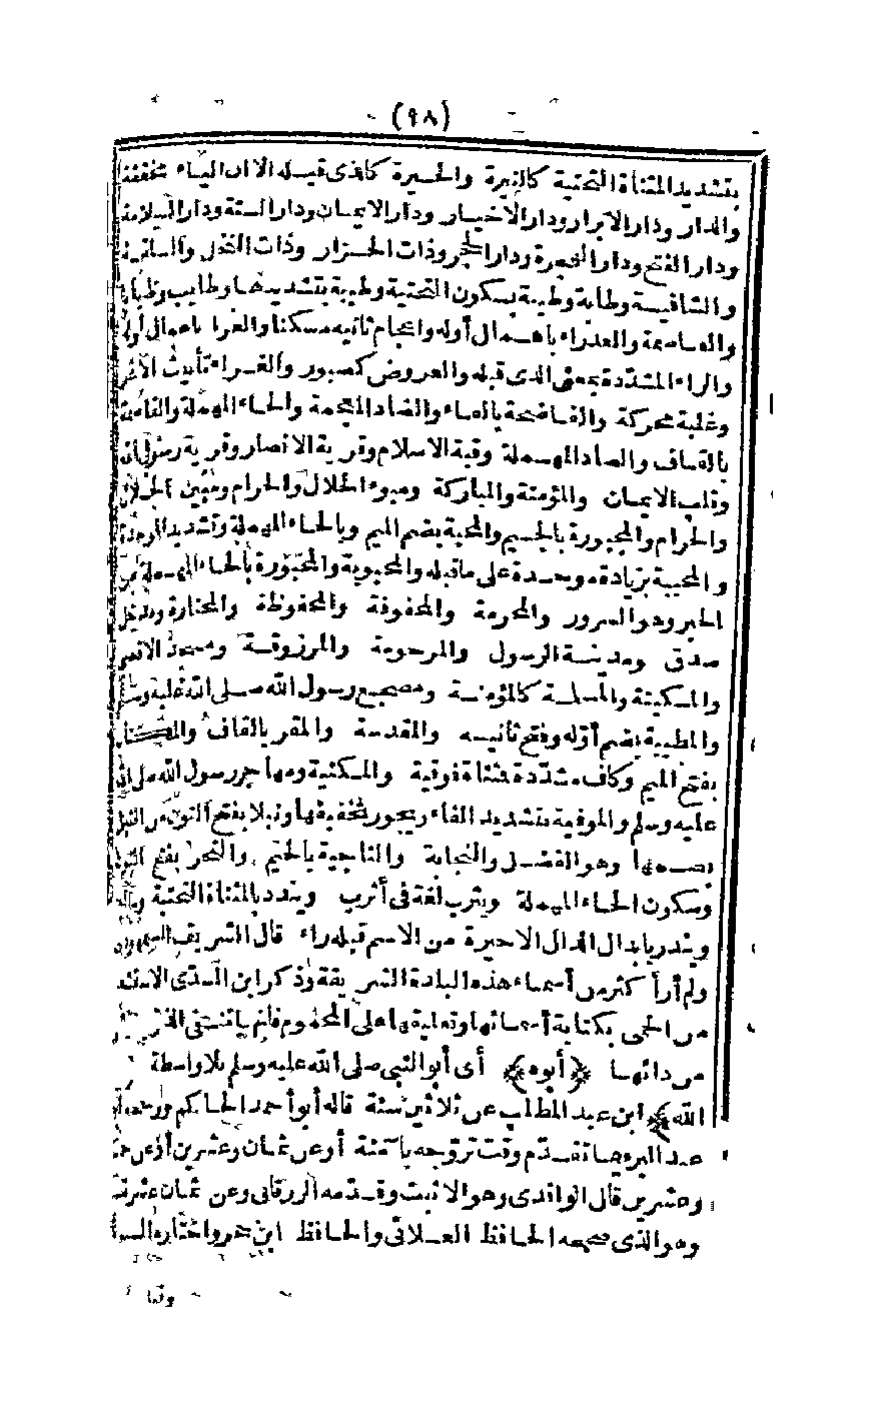 (٩٨)
بتشديد المثناة التحتية كالنيرة والحيرة كالذى قبله الا ان الياء مخففة
والدار ودار الابرار ودار الاخيار ودار الايمان ودار السنة ودار السلامة
ودار الفتح ودار الهجرة ودار الحجر وذات الحرار وذات النخل والسلقة
والشافية وطابة وطيبة بسكون التحتية وطيبة بتشديدها وطايب وظبابا
والعاصمة والعذراء باهمال أوله واعجام ثانيه مسكنا والغرا باعمال أوله
والراء المشددة بمعنى الذى قبله والعروض كصبور والغراء تأنيث الاغر
وغلبة محركة والفاضحة بالفاء والضاد المعجمة والحاء المهملة والقاصمة
بالقاف والصاد المهملة وقبة الاسلام وقرية الانصار وقرية رسول الله
وقلب الايمان والمؤمنة والمباركة ومبوء الحلال والحرام ومبين الحلال
والحرام والمجبورة بالجيم والمحبة بضم الميم وبالحاء المهملة وتشديد الموحدة
والمحببة بزيادة موحدة على ماقبله والمحبوبة والمحبورة بالحاء المهملة من
الحبر وهو السرور والمحرمة والمحفوفة والمحفوظة والمختارة ومدخل
صدق ومدينة الرسول والمرحومة والمرزوقة ومسجد الاقصى
والمسكينة والمسلمة كالمؤمنة ومضجع رسول الله صلى الله عليه وسلم
والمطيبة بضم أوله وفتح ثانيه والمقدسة والمقر بالقاف والمكتان
بفتح الميم وكاف مشددة فمثناة فوقية والمكتية ومهاجر رسول الله صلى الله
عليه وسلم والموفية بتشديد الفاء ويجوز تخفيفها ونبلا بفتح النون من النبل
بضمها وهو الفضل والنجابة والناجية بالجيم والنحر بفتح النون
وسكون الحاء المهملة ويثرب لغة فى أثرب ويندد بالمثناة التحتية
ويندر بابدال الدال الاخيرة من الاسم قبله راء قال الشريف السمهودى
ولم أر أكثر من أسماء هذه البلدة الشريفة وذكر ابن السدى الاستشفاء
من الحمى بكتابة أسمائها وتعليقها على المحموم فانه يا تشفى
من دائها ﴿أبوه﴾ أى أبو النبى صلى الله عليه وسلم بلا واسطة
الله﴾ ابن عبد المطلب عن ثلاثين سنة قاله أبو أحمد الحاكم
عبد البر وهما تقدم وقت تزوجه بآمنة أو عن ثمان وعشرين أو عن خمس
وعشرين قال الواقدى وهو الاثبت وقدمه الزرقانى وعن ثمان عشرة
وهو الذى صححه الحافظ العلائى والحافظ ابن حجر واختاره السيوطى
وقيل